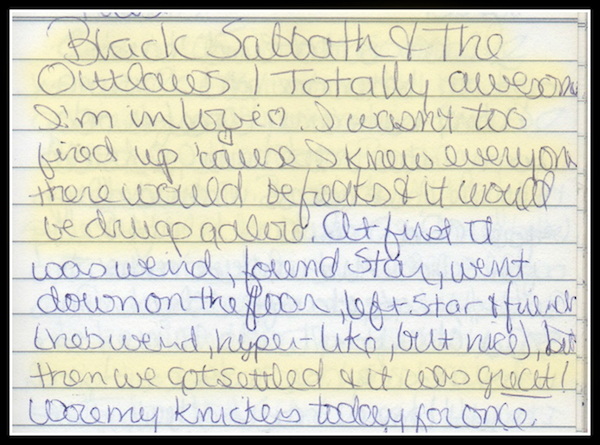 Black Sabbath & The
Outlaws! Totally awesom
I'm in love♡. I wasn't too
fired up 'cause I knew everyon
there would be freaks & it would
be drugs galore. At first it
was weird, found Star, went
down on the floor, left Star & friend
(he's weird, hyper-like, but nice), but
then we got settled & it was great!
Wore my knickers today for once.